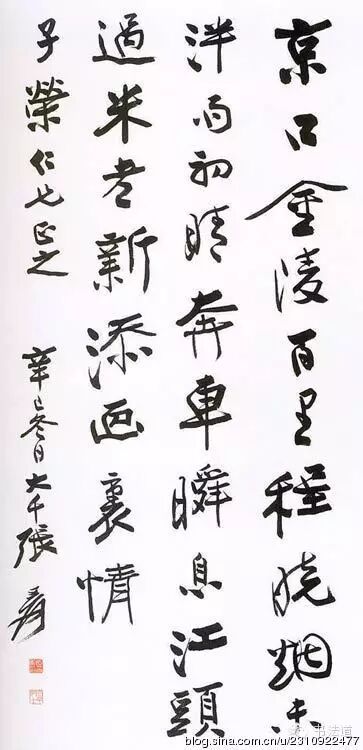 京口金陵百里程曉烟未
泮雨初晴奔車瞬息江頭
過米老新添画裏情
子榮仁兄正之 辛巳冬日大千張爰
书法道
blog.sina.com.cn/u/2310922477